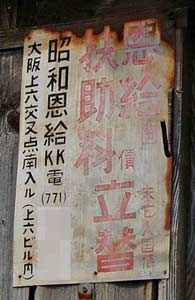 恩給
国債
未亡人国債
扶助料
立替
昭和恩給KK電(771)
大阪上六交叉点南入ル(上六ビル内)